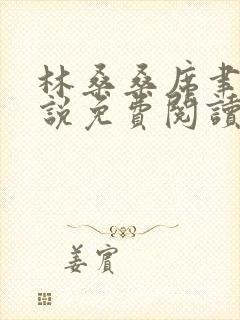 林桑桑席聿
說免費閱讀
姜賓